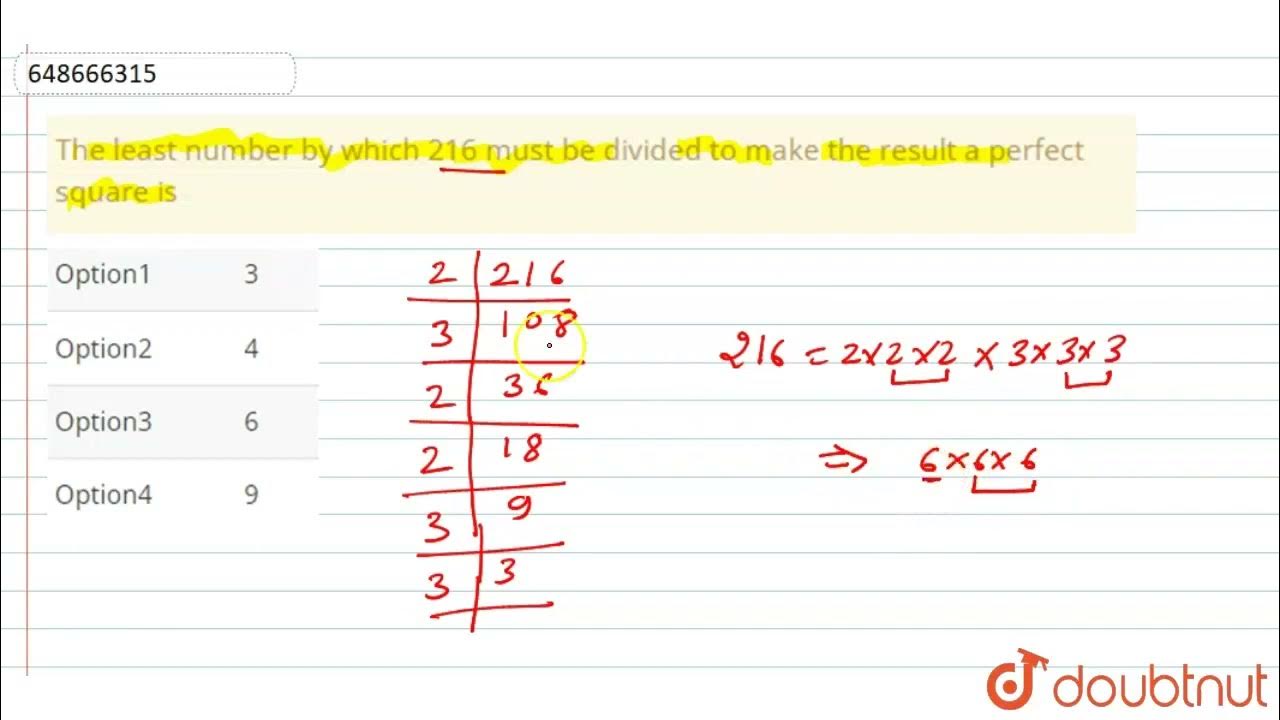 648666315
The least number by which 216 must be divided to make the result a perfect
square is
Option1 3
Option2 4
Option3 6
Option4 9
2 216
3 108
2 36
2 18
3 9
3 3
216 = 2×2×2 × 3×3×3
⇒ 6×6×6
doubtnut